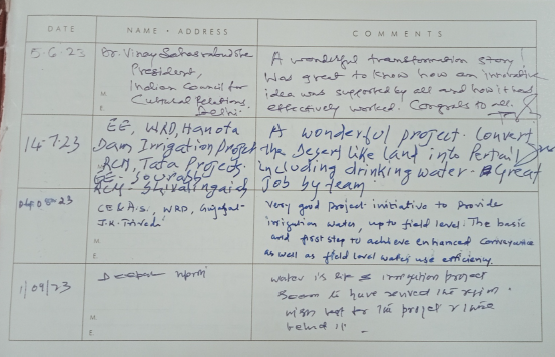 DATE
NAME • ADDRESS
COMMENTS
5.6.23
Dr. Vinay Sahasrabuddhe
President,
Indian Council for
Cultural Relations,
Delhi
M.
E.
A wonderful transformation story!
Was great to know how an innovative
idea was supported by all and how it had
effectively worked. Congrats to all.
14.7.23
EE, WRD, Hanota
Dam Irrigation Project
RCM, Tata Projects
EE - Sourabh
RCM - Shivalingaiah
A wonderful project. Convert
the Desert like land into Fertail
including drinking water. Great
job by team
23
CE & A.S., WRD, Gujarat
J.K. Trivedi
M.
E.
Very good project initiative to provide
irrigation water, upto field level. The basic
and first step to achieve enhanced conveyance
as well as field level water use efficiency.
1/09/23
Deepak
M.
E.
water is life & irrigation project
seem to have revived the region.
wish best for the project & those
behind it.